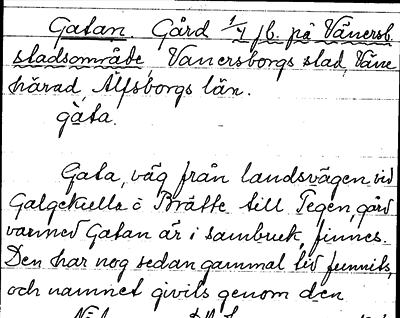 Gatan. Gård 1/4 fb. på Vänersb.
stadsområde Vänersborgs stad, Väne
härad, Älfsborgs län.
gàta.
Gata, väg från landsvägen vid
Galgekulla ö Brätte till Tegen, gård
varmed Gatan är i sambruk, finnes.
Den har nog sedan gammal tid funnits,
och namnet givits genom den